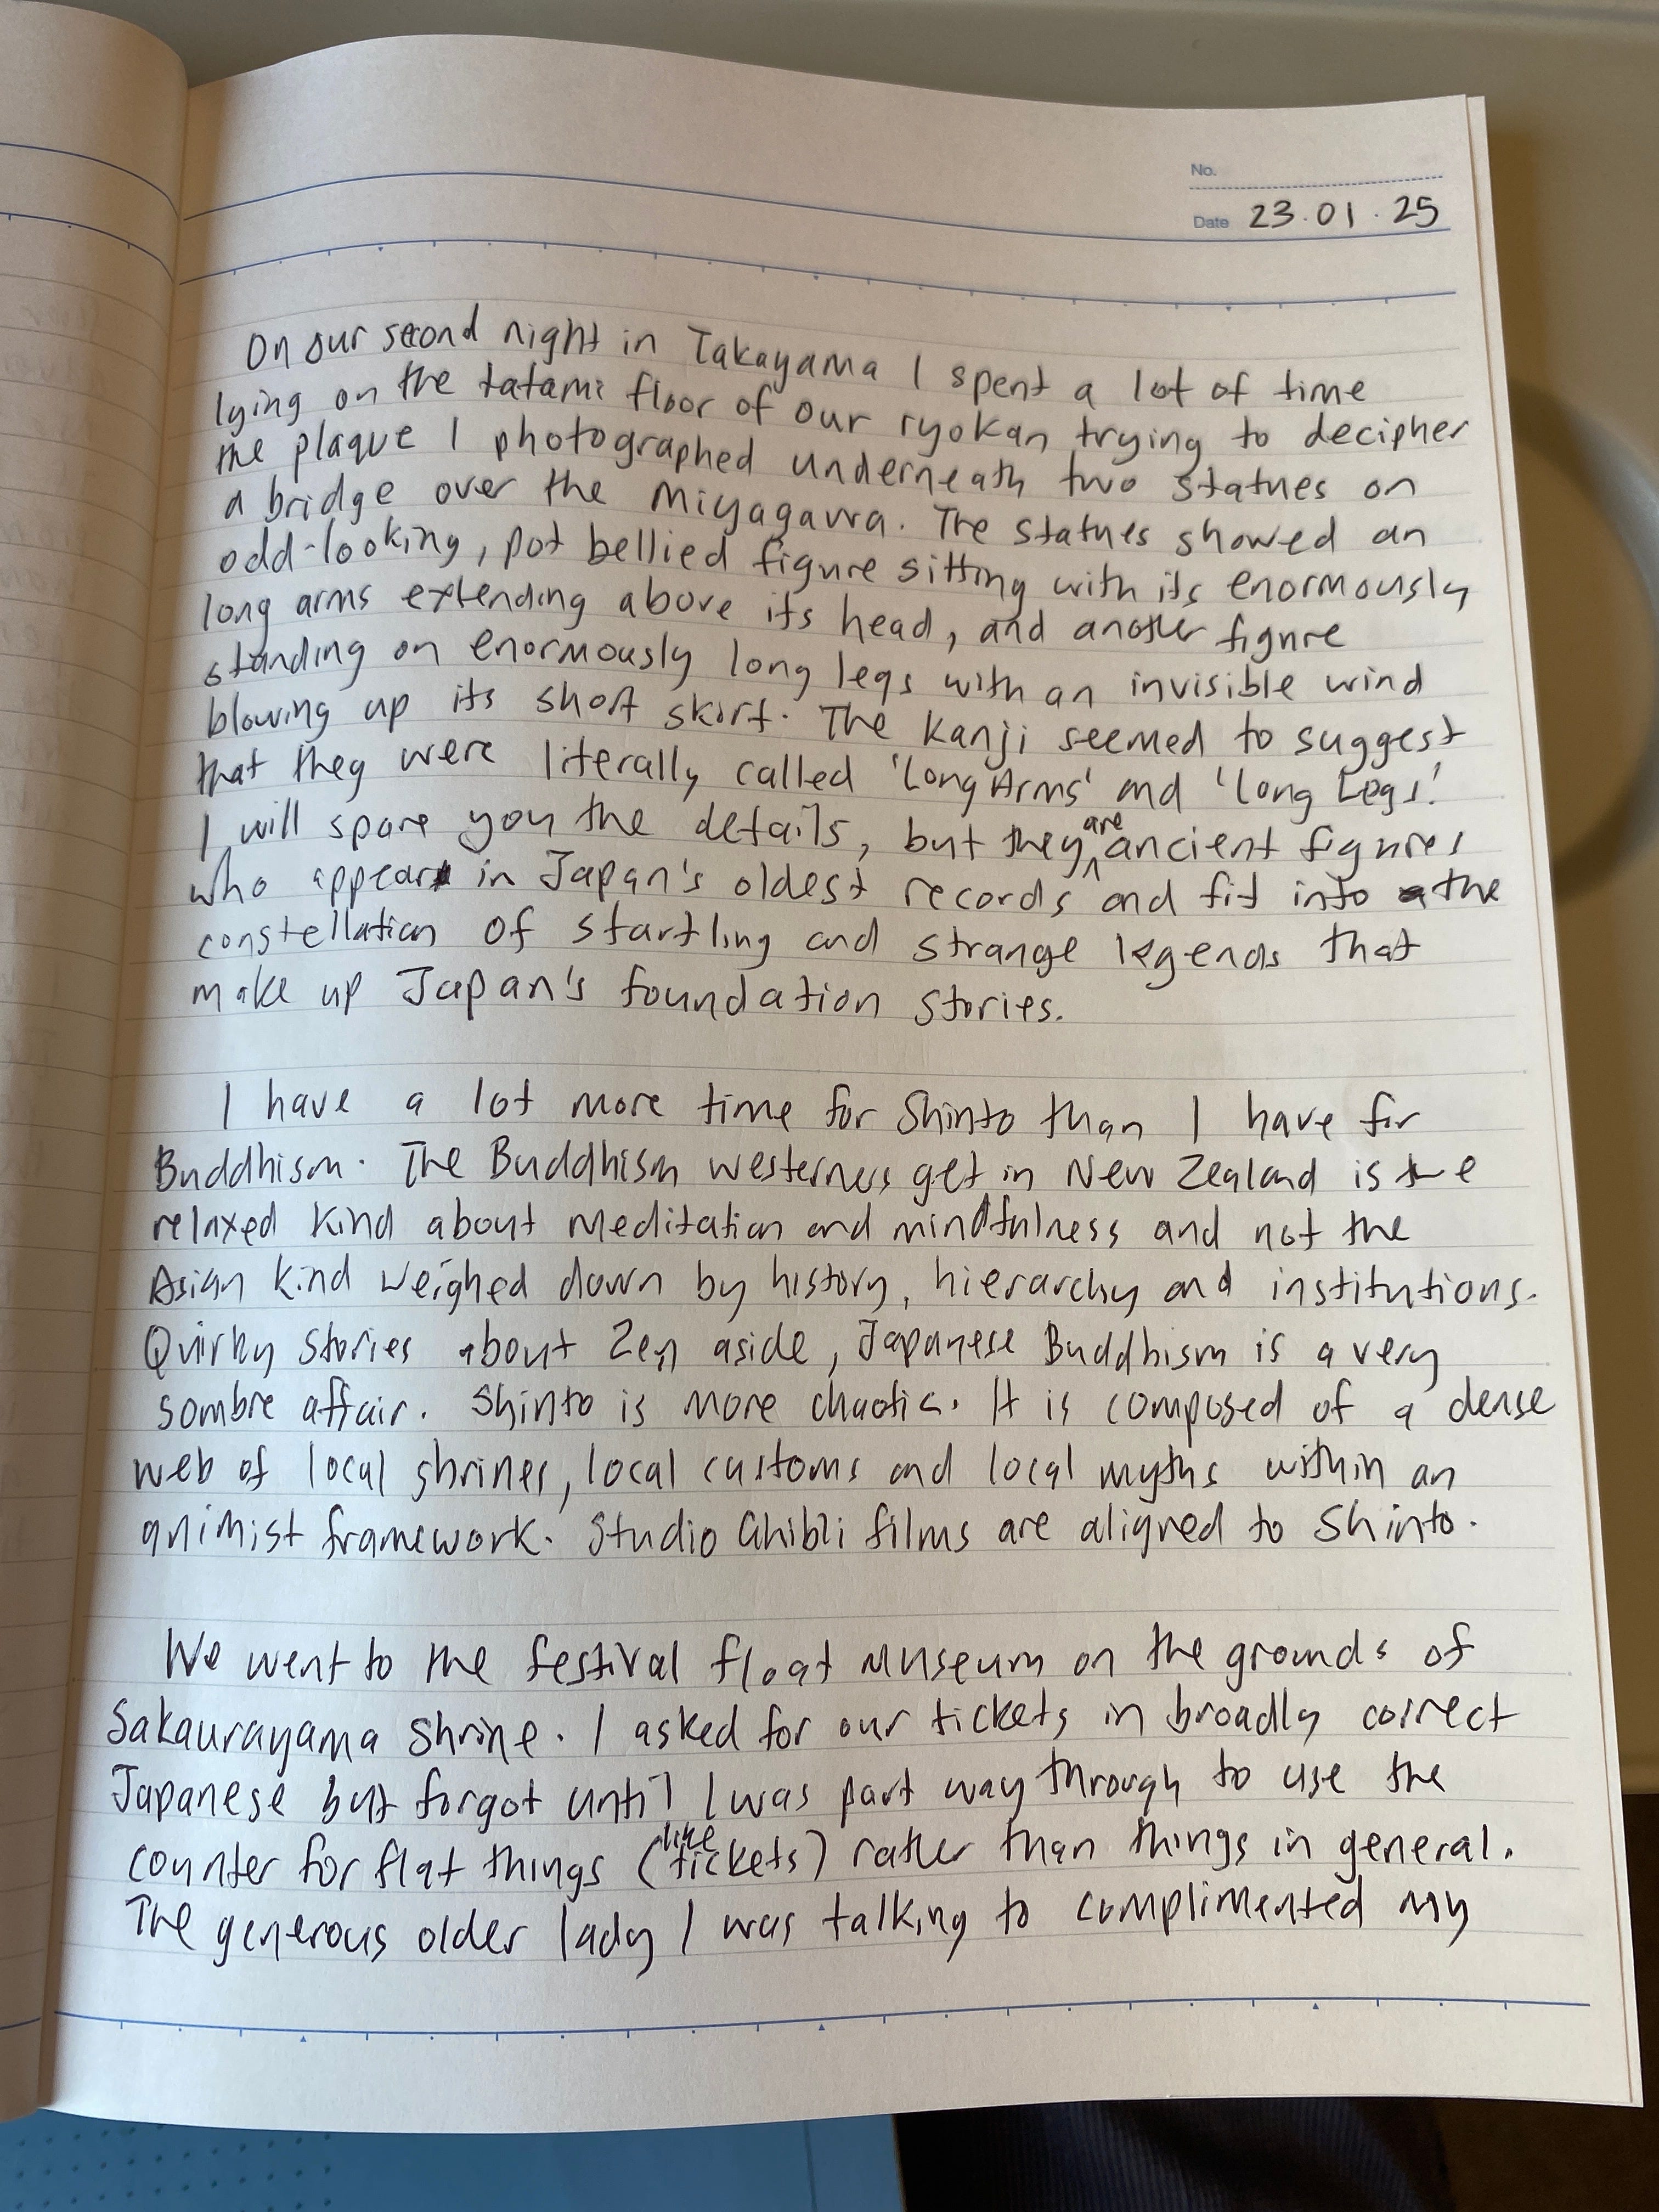 No.
Date 23.01.25
On our second night in Takayama I spent a lot of time
lying on the tatami floor of our ryokan trying to decipher
the plaque I photographed underneath two statues on
a bridge over the Miyagawa. The statues showed an
odd-looking, pot bellied figure sitting with its enormously
long arms extending above its head, and another figure
standing on enormously long legs with an invisible wind
blowing up its short skirt. The kanji seemed to suggest
that they were literally called 'Long Arms' and 'Long Legs'.
I will spare you the details, but they are ancient figures
who appear in Japan's oldest records and fit into the
constellation of startling and strange legends that
make up Japan's foundation stories.
I have a lot more time for Shinto than I have for
Buddhism. The Buddhism westerners get in New Zealand is the
relaxed kind about meditation and mindfulness and not the
Asian kind weighed down by history, hierarchy and institutions.
Quirky stories about Zen aside, Japanese Buddhism is a very
sombre affair. Shinto is more chaotic. It is composed of a dense
web of local shrines, local customs and local myths within an
animist framework. Studio Ghibli films are aligned to Shinto.
We went to the festival float museum on the grounds of
Sakaurayama Shrine. I asked for our tickets in broadly correct
Japanese but forgot until I was part way through to use the
counter for flat things (like tickets) rather than things in general.
The generous older lady I was talking to complimented my